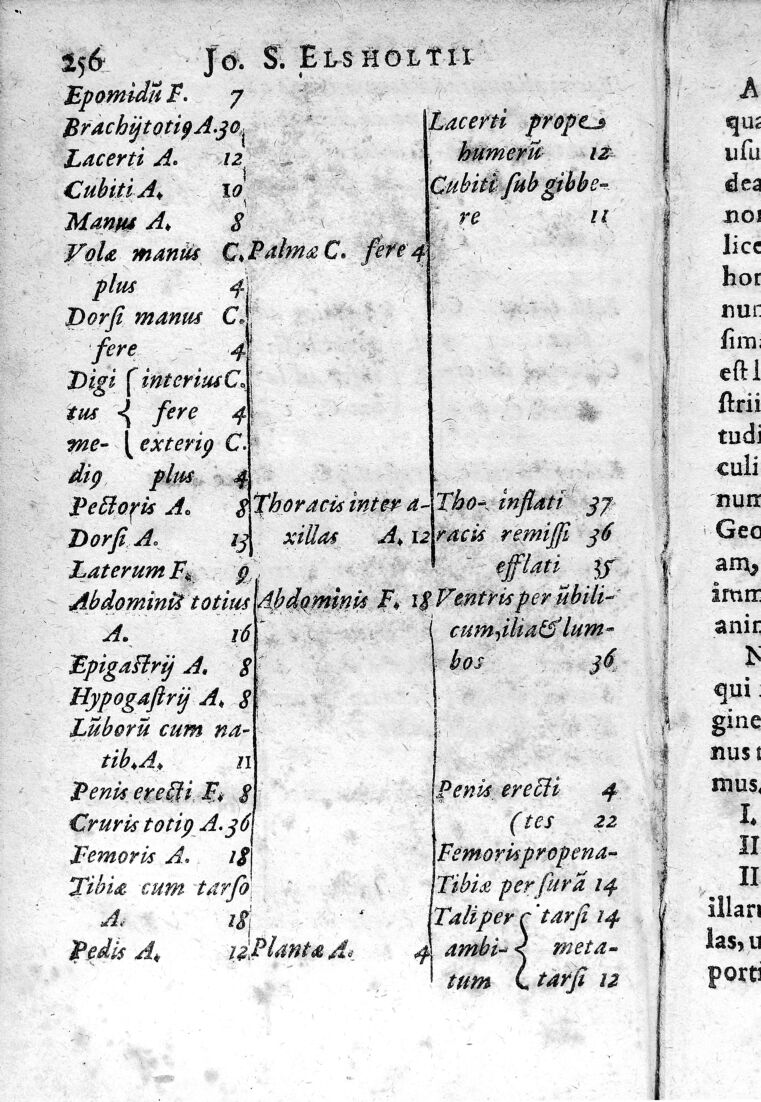 256 Jo. S. ELSHOLTII
Epomidũ F. 7
Brachij totiꝰ A. 30 Lacerti prope
Lacerti A. 12 humerũ 12
Cubiti A. 10 Cubiti ſub gibbe-
Manus A. 8 re 11
Volæ manus C. Palmæ C. fere 4
plus 4
Dorſi manus C.
fere 4
Digi { interius C.
tus { fere 4
me- { exteriꝰ C.
diꝰ plus 4
Pectoris A. 8 Thoracis inter a- Tho- inflati 37
Dorſi A. 13 xillas A. 12 racis remiſſi 36
Laterum F. 9 efflati 35
Abdominis totius Abdominis F. 18 Ventris per ũbili-
A. 16 cum, ilia & lum-
Epigaſtrij A. 8 bos 36
Hypogaſtrij A. 8
Lũborũ cum na-
tib. A. 11
Penis erecti F. 8 Penis erecti 4
Cruris totiꝰ A. 36 (tes 22
Femoris A. 18 Femoris prope na-
Tibiæ cum tarſo Tibiæ per ſurã 14
A. 18 Tali per { tarſi 14
Pedis A. 12 Plantæ A. 4 ambi- { meta-
tum { tarſi 12
A
qua
uſu
dea
non
lice
hor
nun
ſima
eſt l
ſtrii
tudi
culi
num
Geo
am,
imm
anin
N
qui
gine
nus
mus.
I.
II
II
illar
las, u
porti